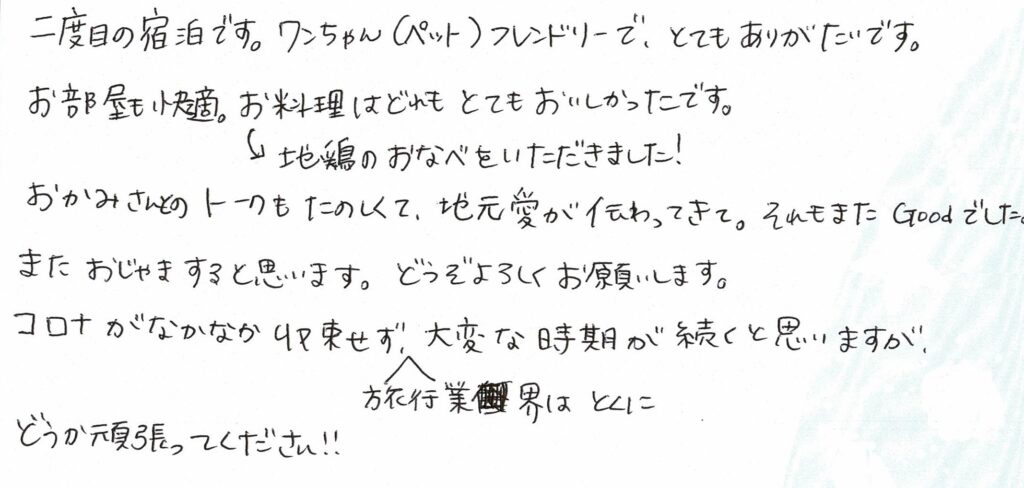 二度目の宿泊です。ワンちゃん(ペット)フレンドリーで、とてもありがたいです。
お部屋も快適。お料理はどれもとてもおいしかったです。
↳ 地鶏のおなべをいただきました!
おかみさんとのトークもたのしくて、地元愛が伝わってきて。それもまたGoodでした。
またおじゃますると思います。どうぞよろしくお願いします。
コロナがなかなか収束せず、大変な時期が続くと思いますが、
旅行業界はとくに
どうか頑張ってください!!